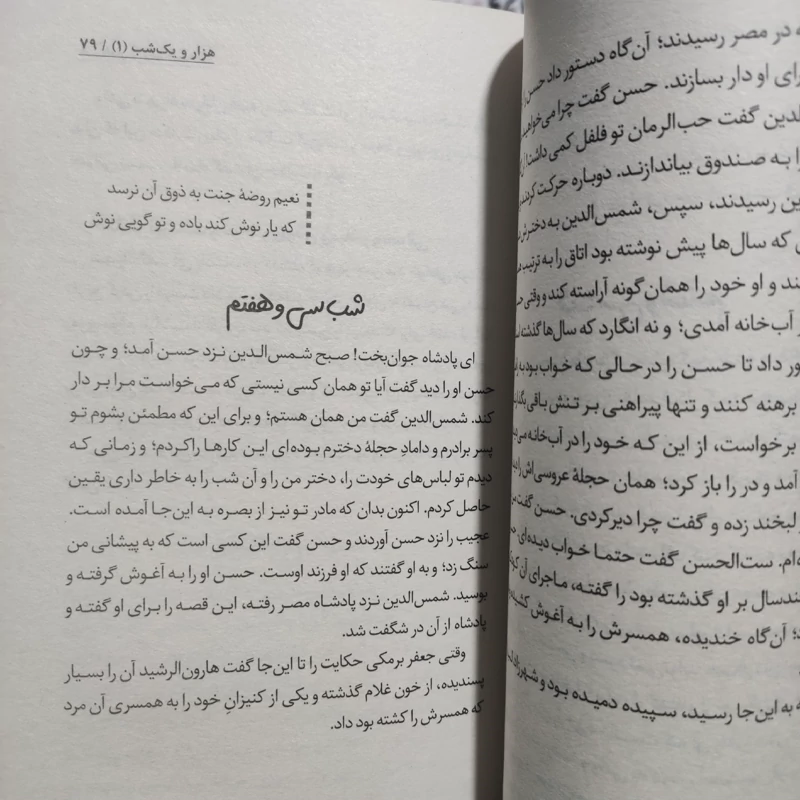 ه در مصر رسیدند؛ آن‌گاه دستور داد حسن را
رای او دار بسازند. حسن گفت چرا می‌خواهید
لدین گفت حب‌الرمان تو فلفل کمی داشت؛
را به صندوق بیاندازند. دوباره حرکت کردند
ین رسیدند، سپس، شمس‌الدین به دخترش
ی که سال‌ها پیش نوشته بود اتاق را به ترتیب
ند و او خود را همان‌گونه آراسته کند و وقتی
ر آب‌خانه آمدی؛ و نه انگارد که سال‌ها گذشته
ور داد تا حسن را در حالی که خواب بود به
برهنه کنند و تنها پیراهنی بر تنش باقی
برخواست، از این که خود را در آب‌خانه
آمد و در را باز کرد؛ همان حجلهٔ عروسی‌اش را
لبخند زده و گفت چرا دیرکردی. حسن گفت
ه‌ام. ست‌الحسن گفت حتما خواب دیده‌ای
ندسال بر او گذشته بود را گفته، ماجرای آن
د؛ آن‌گاه خندیده، همسرش را به آغوش
ه به این‌جا رسید، سپیده دمیده بود و شهرزاد
هزار و یک‌شب (۱) / ۷۹
نعیم روضهٔ جنت به ذوق آن نرسد
که یار نوش کند باده و تو گویی نوش
شب سی و هفتم
ای پادشاه جوان‌بخت! صبح شمس‌الدین نزد حسن آمد؛ و چون
حسن او را دید گفت آیا تو همان کسی نیستی که می‌خواست مرا بر دار
کند. شمس‌الدین گفت من همان هستم؛ و برای این که مطمئن بشوم تو
پسر برادرم و دامادِ حجلهٔ دخترم بوده‌ای این کارها را کردم؛ و زمانی که
دیدم تو لباس‌های خودت را، دختر من را و آن شب را به خاطر داری یقین
حاصل کردم. اکنون بدان که مادر تو نیز از بصره به این‌جا آمده است.
عجیب را نزد حسن آوردند و حسن گفت این کسی است که به پیشانی من
سنگ زد؛ و به او گفتند که او فرزند اوست. حسن او را به آغوش گرفته و
بوسید. شمس‌الدین نزد پادشاه مصر رفته، این قصه را برای او گفته و
پادشاه از آن در شگفت شد.
وقتی جعفر برمکی حکایت را تا این‌جا گفت هارون‌الرشید آن را بسیار
پسندیده، از خون غلام گذشته و یکی از کنیزانِ خود را به همسری آن مرد
که همسرش را کشته بود داد.